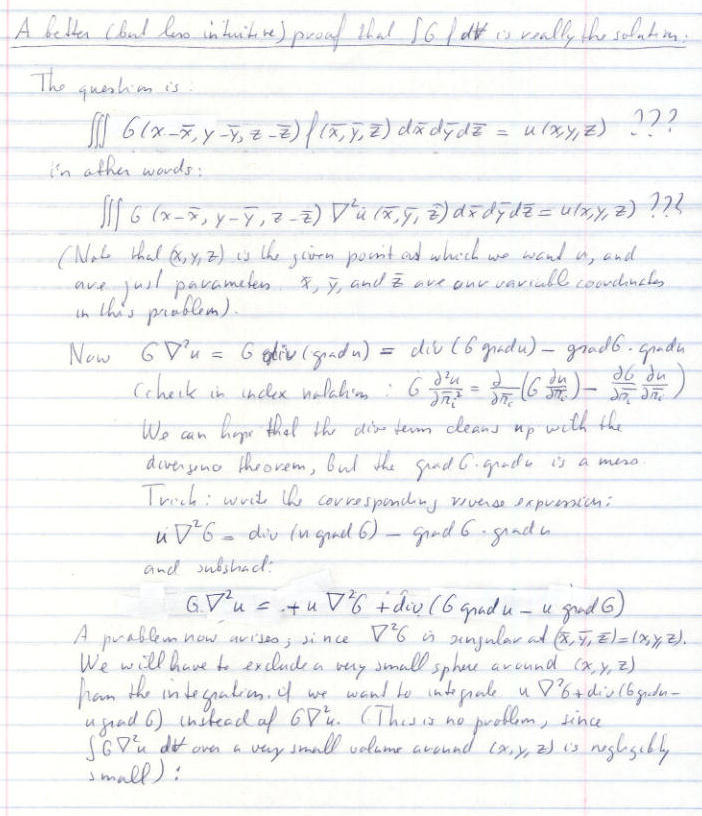 A better (but less intuitive) proof that ∫G f dV is really the solution.
The question is:
∭ G(x-x̄, y-ȳ, z-z̄) f(x̄,ȳ,z̄) dx̄ dȳ dz̄ = u(x,y,z) ???
in other words:
∭ G(x-x̄, y-ȳ, z-z̄) ∇²u(x̄,ȳ,z̄) dx̄ dȳ dz̄ = u(x,y,z) ???
(Note that (x,y,z) is the given point at which we want u, and
are just parameters. x̄, ȳ, and z̄ are our variable coordinates
in this problem).
Now G∇²u = G div(grad u) = div(G grad u) - grad G · grad u
(check in index notation : G ∂²u/∂x̄ᵢ² = ∂/∂x̄ᵢ (G ∂u/∂x̄ᵢ) - ∂G/∂x̄ᵢ ∂u/∂x̄ᵢ)
We can hope that the div term cleans up with the
divergence theorem, but the grad G · grad u is a mess.
Trick: write the corresponding reverse expression:
u∇²G = div(u grad G) - grad G · grad u
and substract:
G∇²u = + u∇²G + div(G grad u - u grad G)
A problem now arises, since ∇²G is singular at (x̄,ȳ,z̄)=(x,y,z).
We will have to exclude a very small sphere around (x,y,z)
from the integration, if we want to integrate u∇²G + div(G grad u -
u grad G) instead of G∇²u. (This is no problem, since
∫G∇²u dV over a very small volume around (x,y,z) is neglegibly
small):